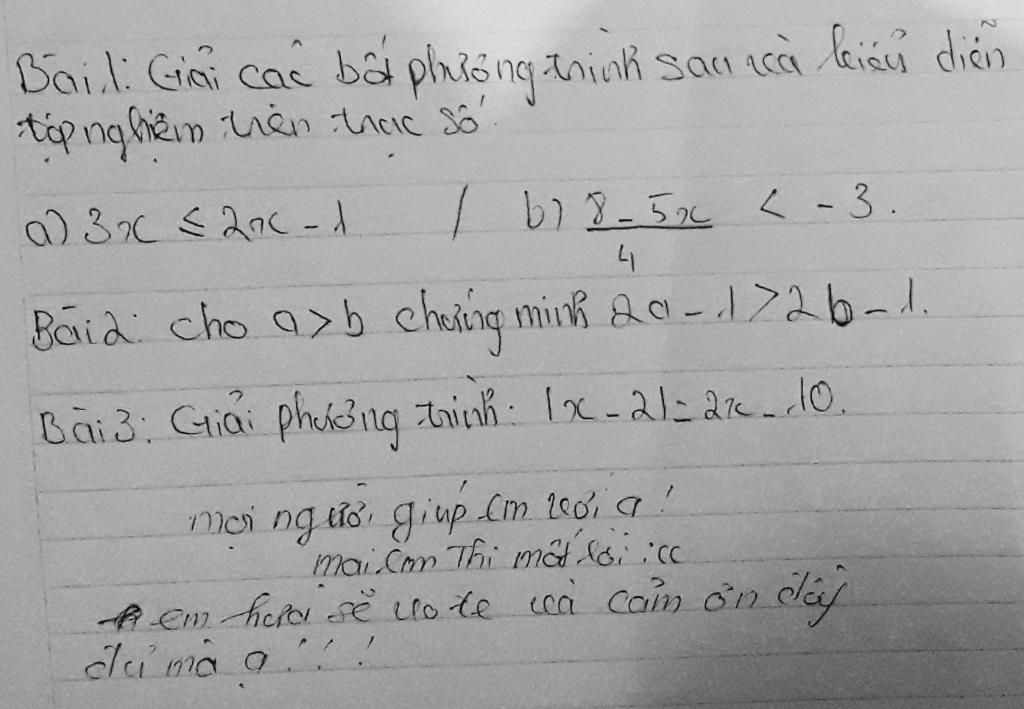 Bài 1: Giải các bất phương trình sau và biểu diễn
tập nghiệm trên trục số.
a) 3x ≤ 2x - 1 / b) \frac{8 - 5x}{4} < -3.
Bài 2: cho a > b chứng minh 2a - 1 > 2b - 1.
Bài 3: Giải phương trình: |x - 2| = 2x - 10.
mọi người giúp em với ạ!
mai em Thi mất rồi :cc
em hứa sẽ vote và cảm ơn đầy
đủ mà ạ!!!